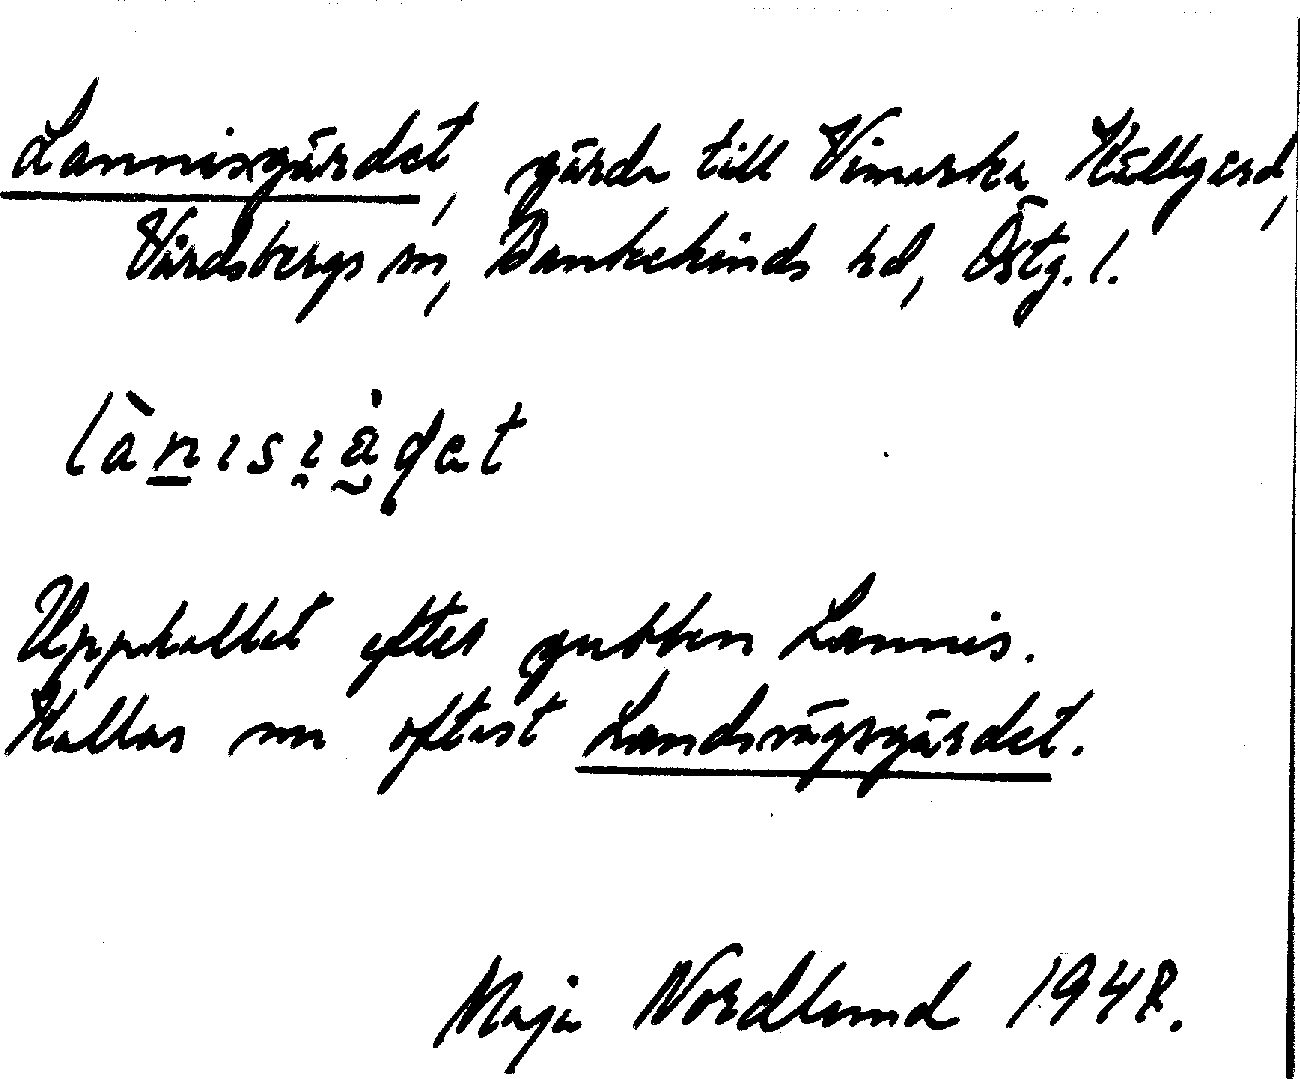 Lannisgärdet, gärde till Vimarka Källgård,
Vårdsbergs sn, Bankekinds hd, Östg. l.
Uppkallat efter gubben Lannis.
Kallas nu oftast Landsvägsgärdet.
Maja Nordlund 1948.